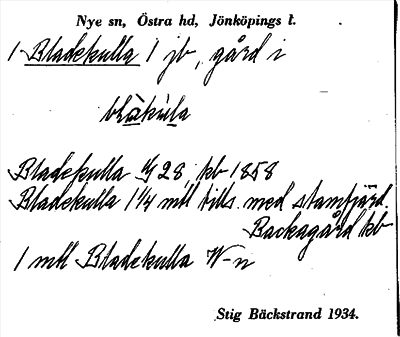 Nye sn, Östra hd, Jönköpings l.
1 Bladekulla 1 jb, gård i
blàkúla
Bladekulla 28, kb 1858
Bladekulla 1 1/4 mtl tills. med stamfjärd.
Backagård kb
1 mtl Bladekulla W-n
Stig Bäckstrand 1934.